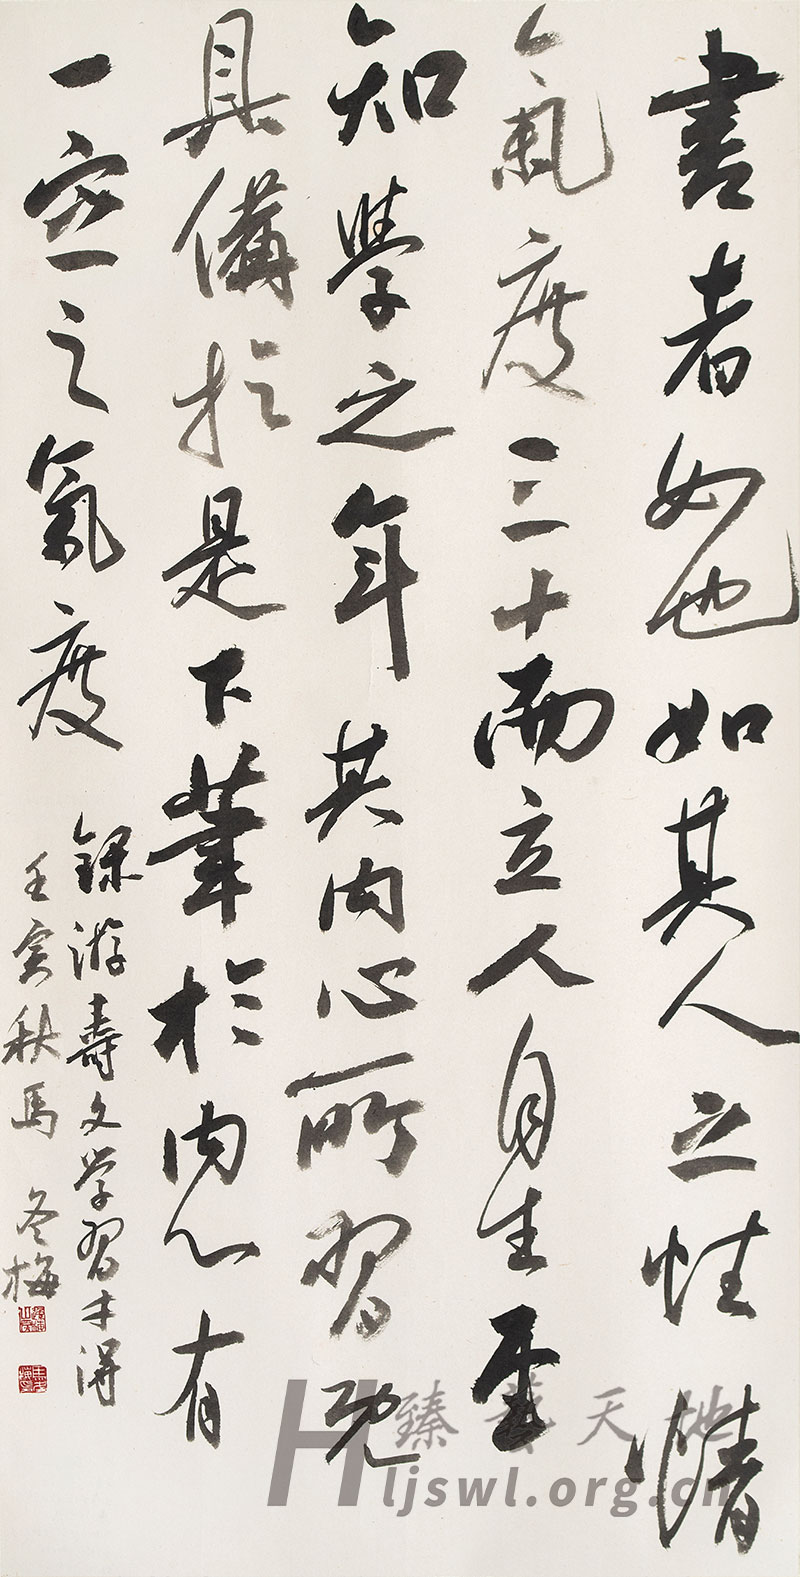 書者如也如其人之性情
氣度三十而立人自生至
知學之年其内心所習既
具備於是下筆於内心有
一定之氣度
録游壽文学習得
壬寅秋馬冬梅
臻藝天地
Hljswl.org.cn